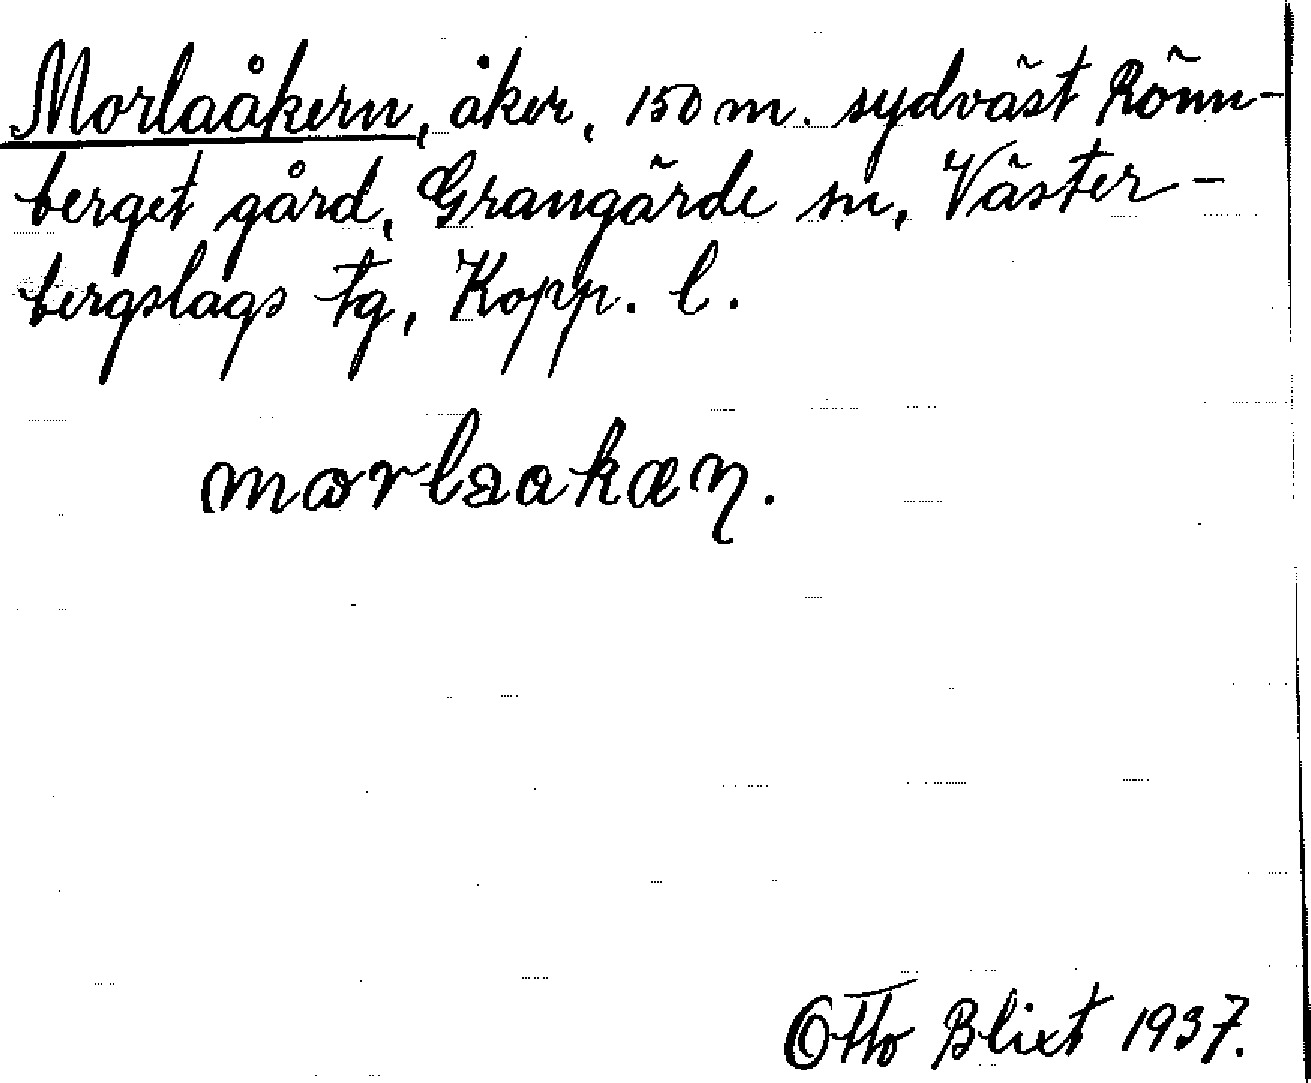 Morlaåkern, åker, 150 m. sydväst Rönn-
berget gård, Grangärde sn, Väster-
bergslags tg, Kopp. l.
Otto Blixt 1937.